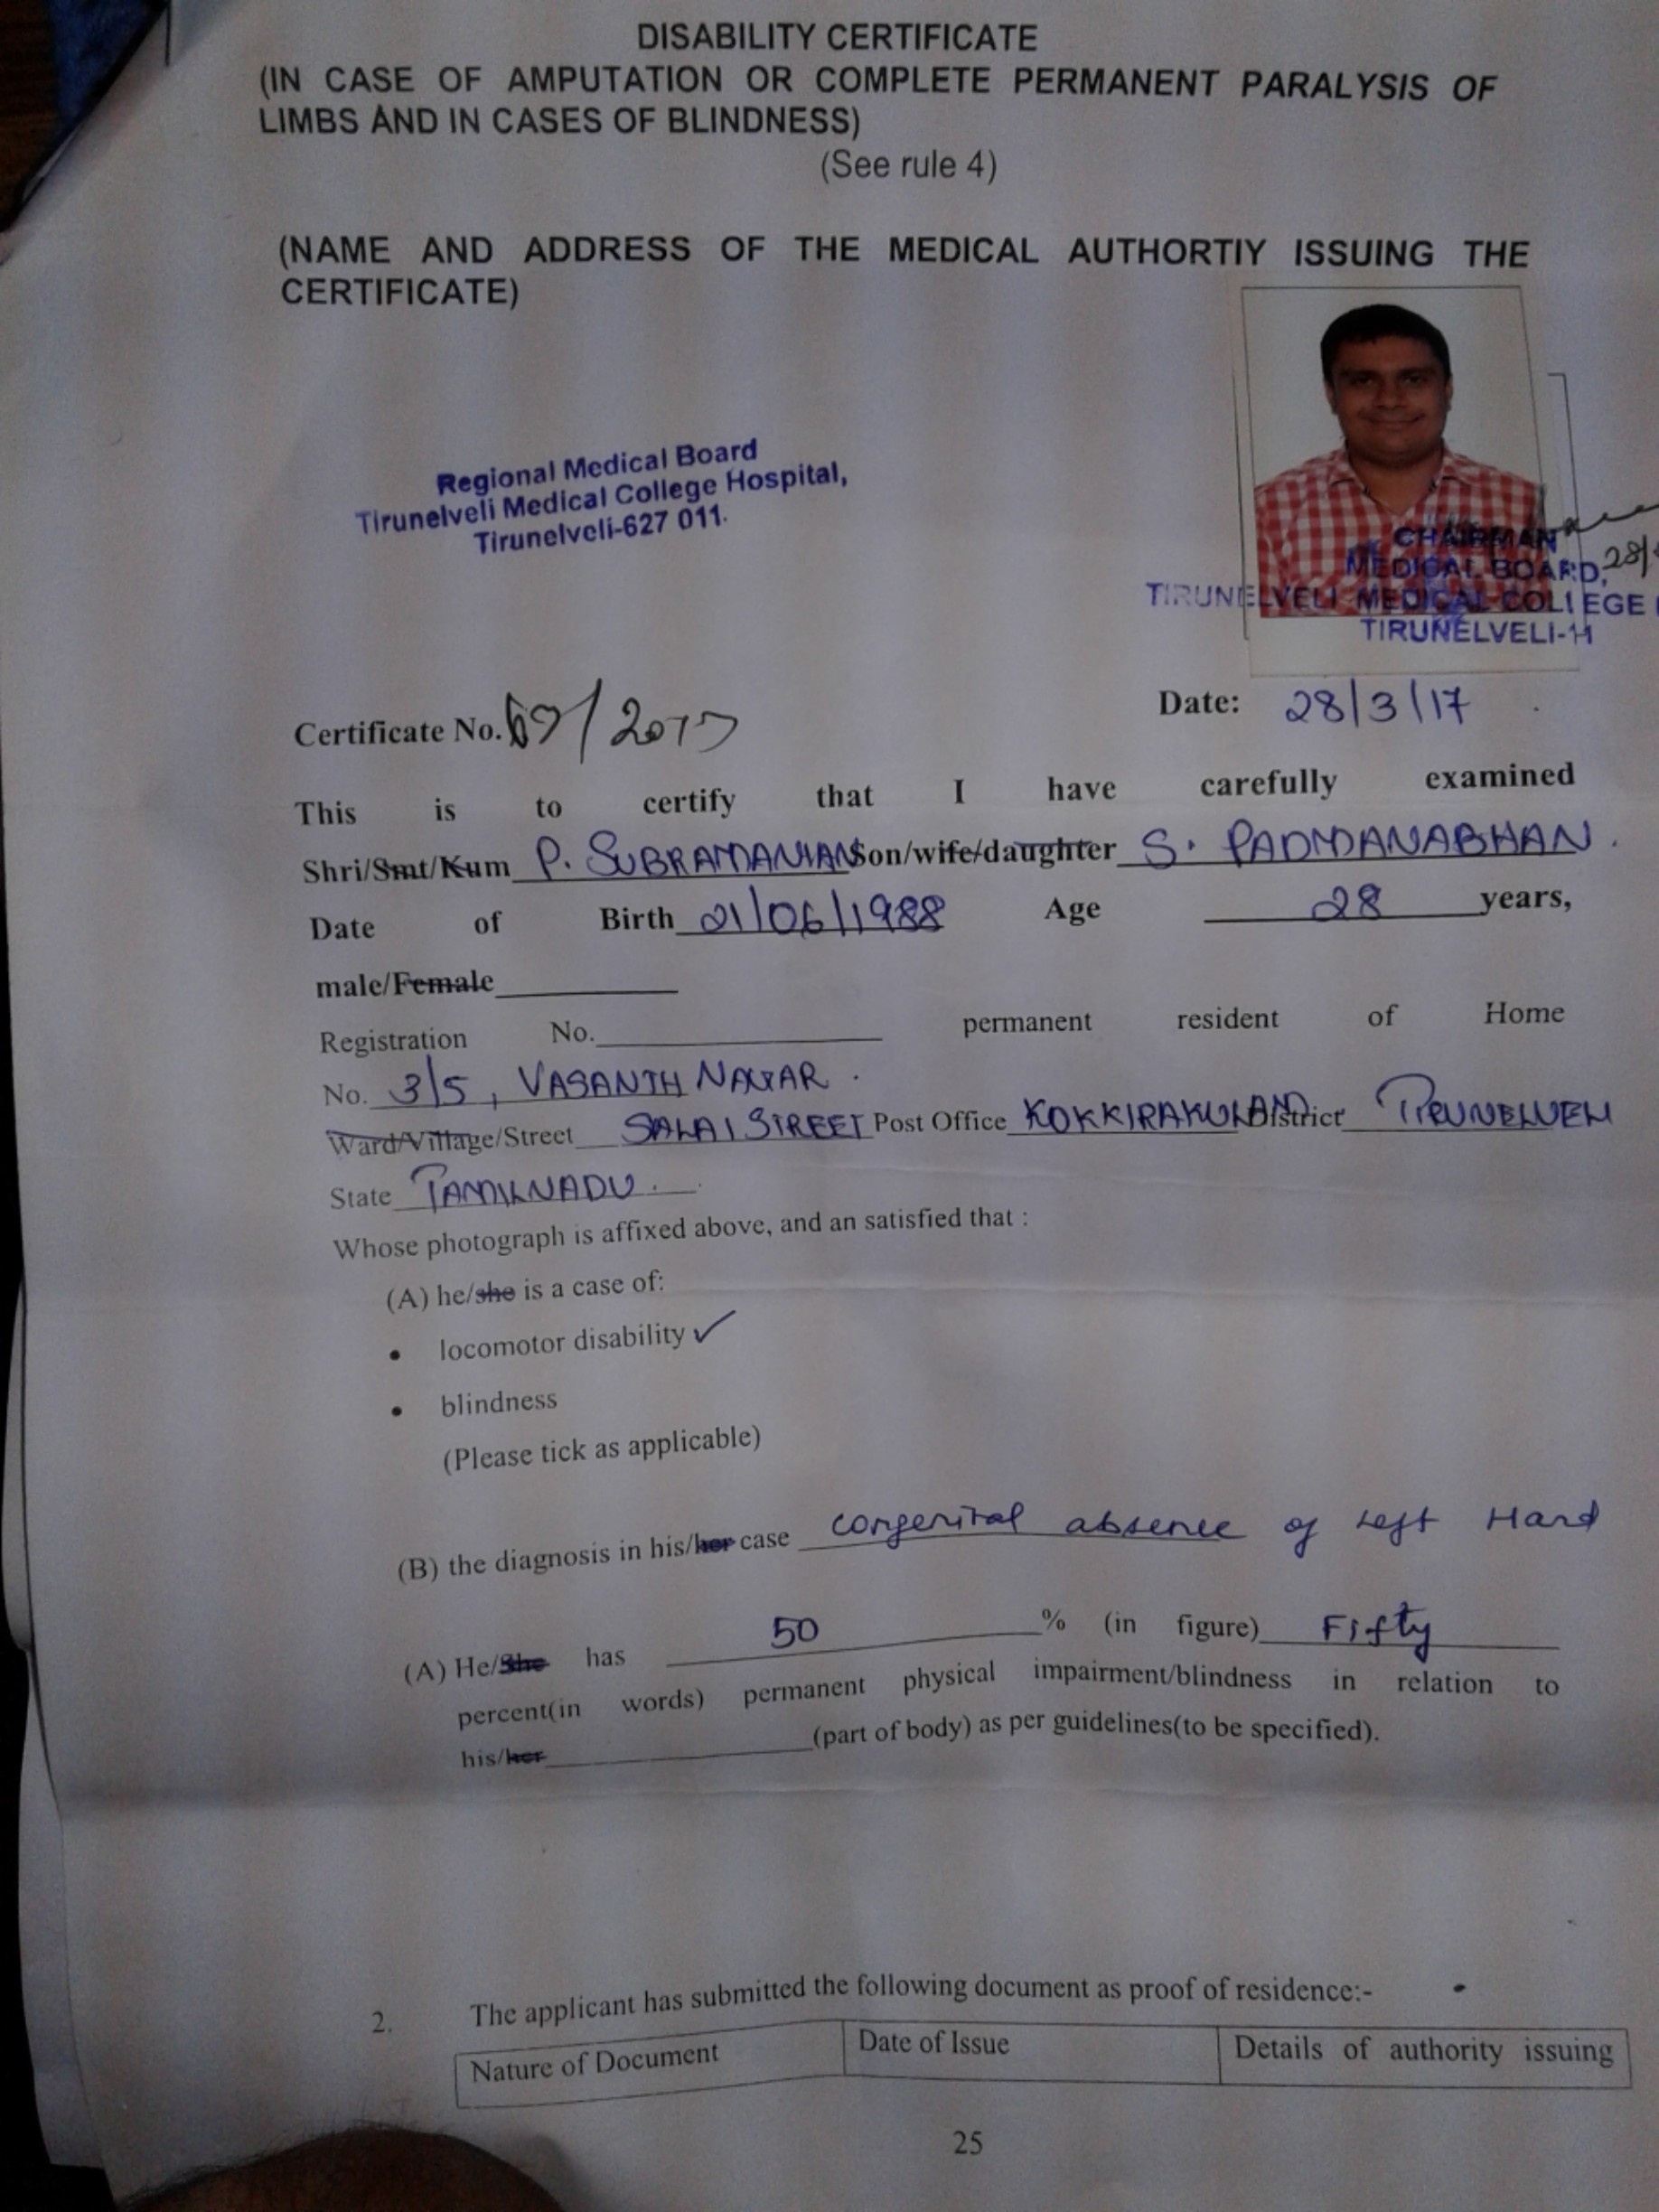 DISABILITY CERTIFICATE
(IN CASE OF AMPUTATION OR COMPLETE PERMANENT PARALYSIS OF
LIMBS AND IN CASES OF BLINDNESS)
(See rule 4)
(NAME AND ADDRESS OF THE MEDICAL AUTHORTIY ISSUING THE
CERTIFICATE)
Regional Medical Board
Tirunelveli Medical College Hospital,
Tirunelveli-627 011.
CHAIRMAN
MEDICAL BOARD, 28/
TIRUNELVELI MEDICAL COLLEGE
TIRUNELVELI-11
Certificate No. 69/2017
Date: 28/3/17
This is to certify that I have carefully examined
Shri/Smt/Kum P. SUBRAMANIAN Son/wife/daughter S. PADMANABHAN.
Date of Birth 21/06/1988 Age 28 years,
male/Female
Registration No. permanent resident of Home
No. 3/5, VASANTH NAGAR.
Ward/Village/Street SALAI STREET Post Office KOKKIRAKULAM District TIRUNELVELI
State TAMILNADU.
Whose photograph is affixed above, and an satisfied that :
(A) he/she is a case of:
• locomotor disability ✓
• blindness
(Please tick as applicable)
(B) the diagnosis in his/her case congenital absence of Left Hand
(A) He/She has 50 % (in figure) Fifty
percent(in words) permanent physical impairment/blindness in relation to
his/her (part of body) as per guidelines(to be specified).
2. The applicant has submitted the following document as proof of residence:-
Nature of Document Date of Issue Details of authority issuing
25